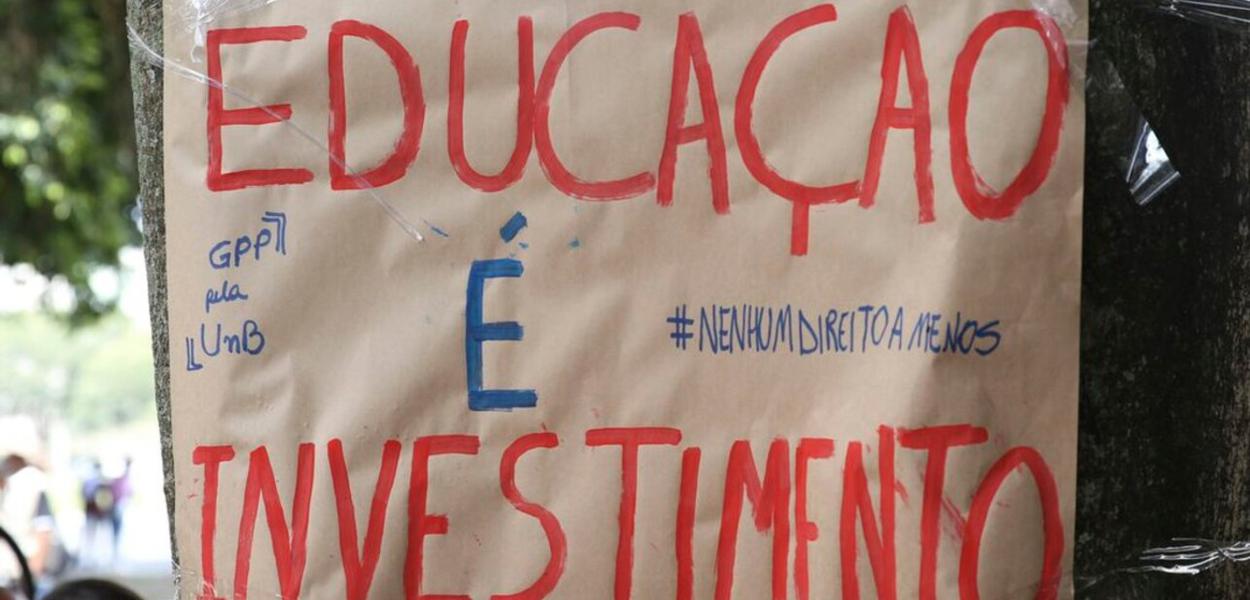 EDUCAÇAO
GPP
pela
UnB
É
#NENHUMDIREITOAMENOS
INVESTIMENTO